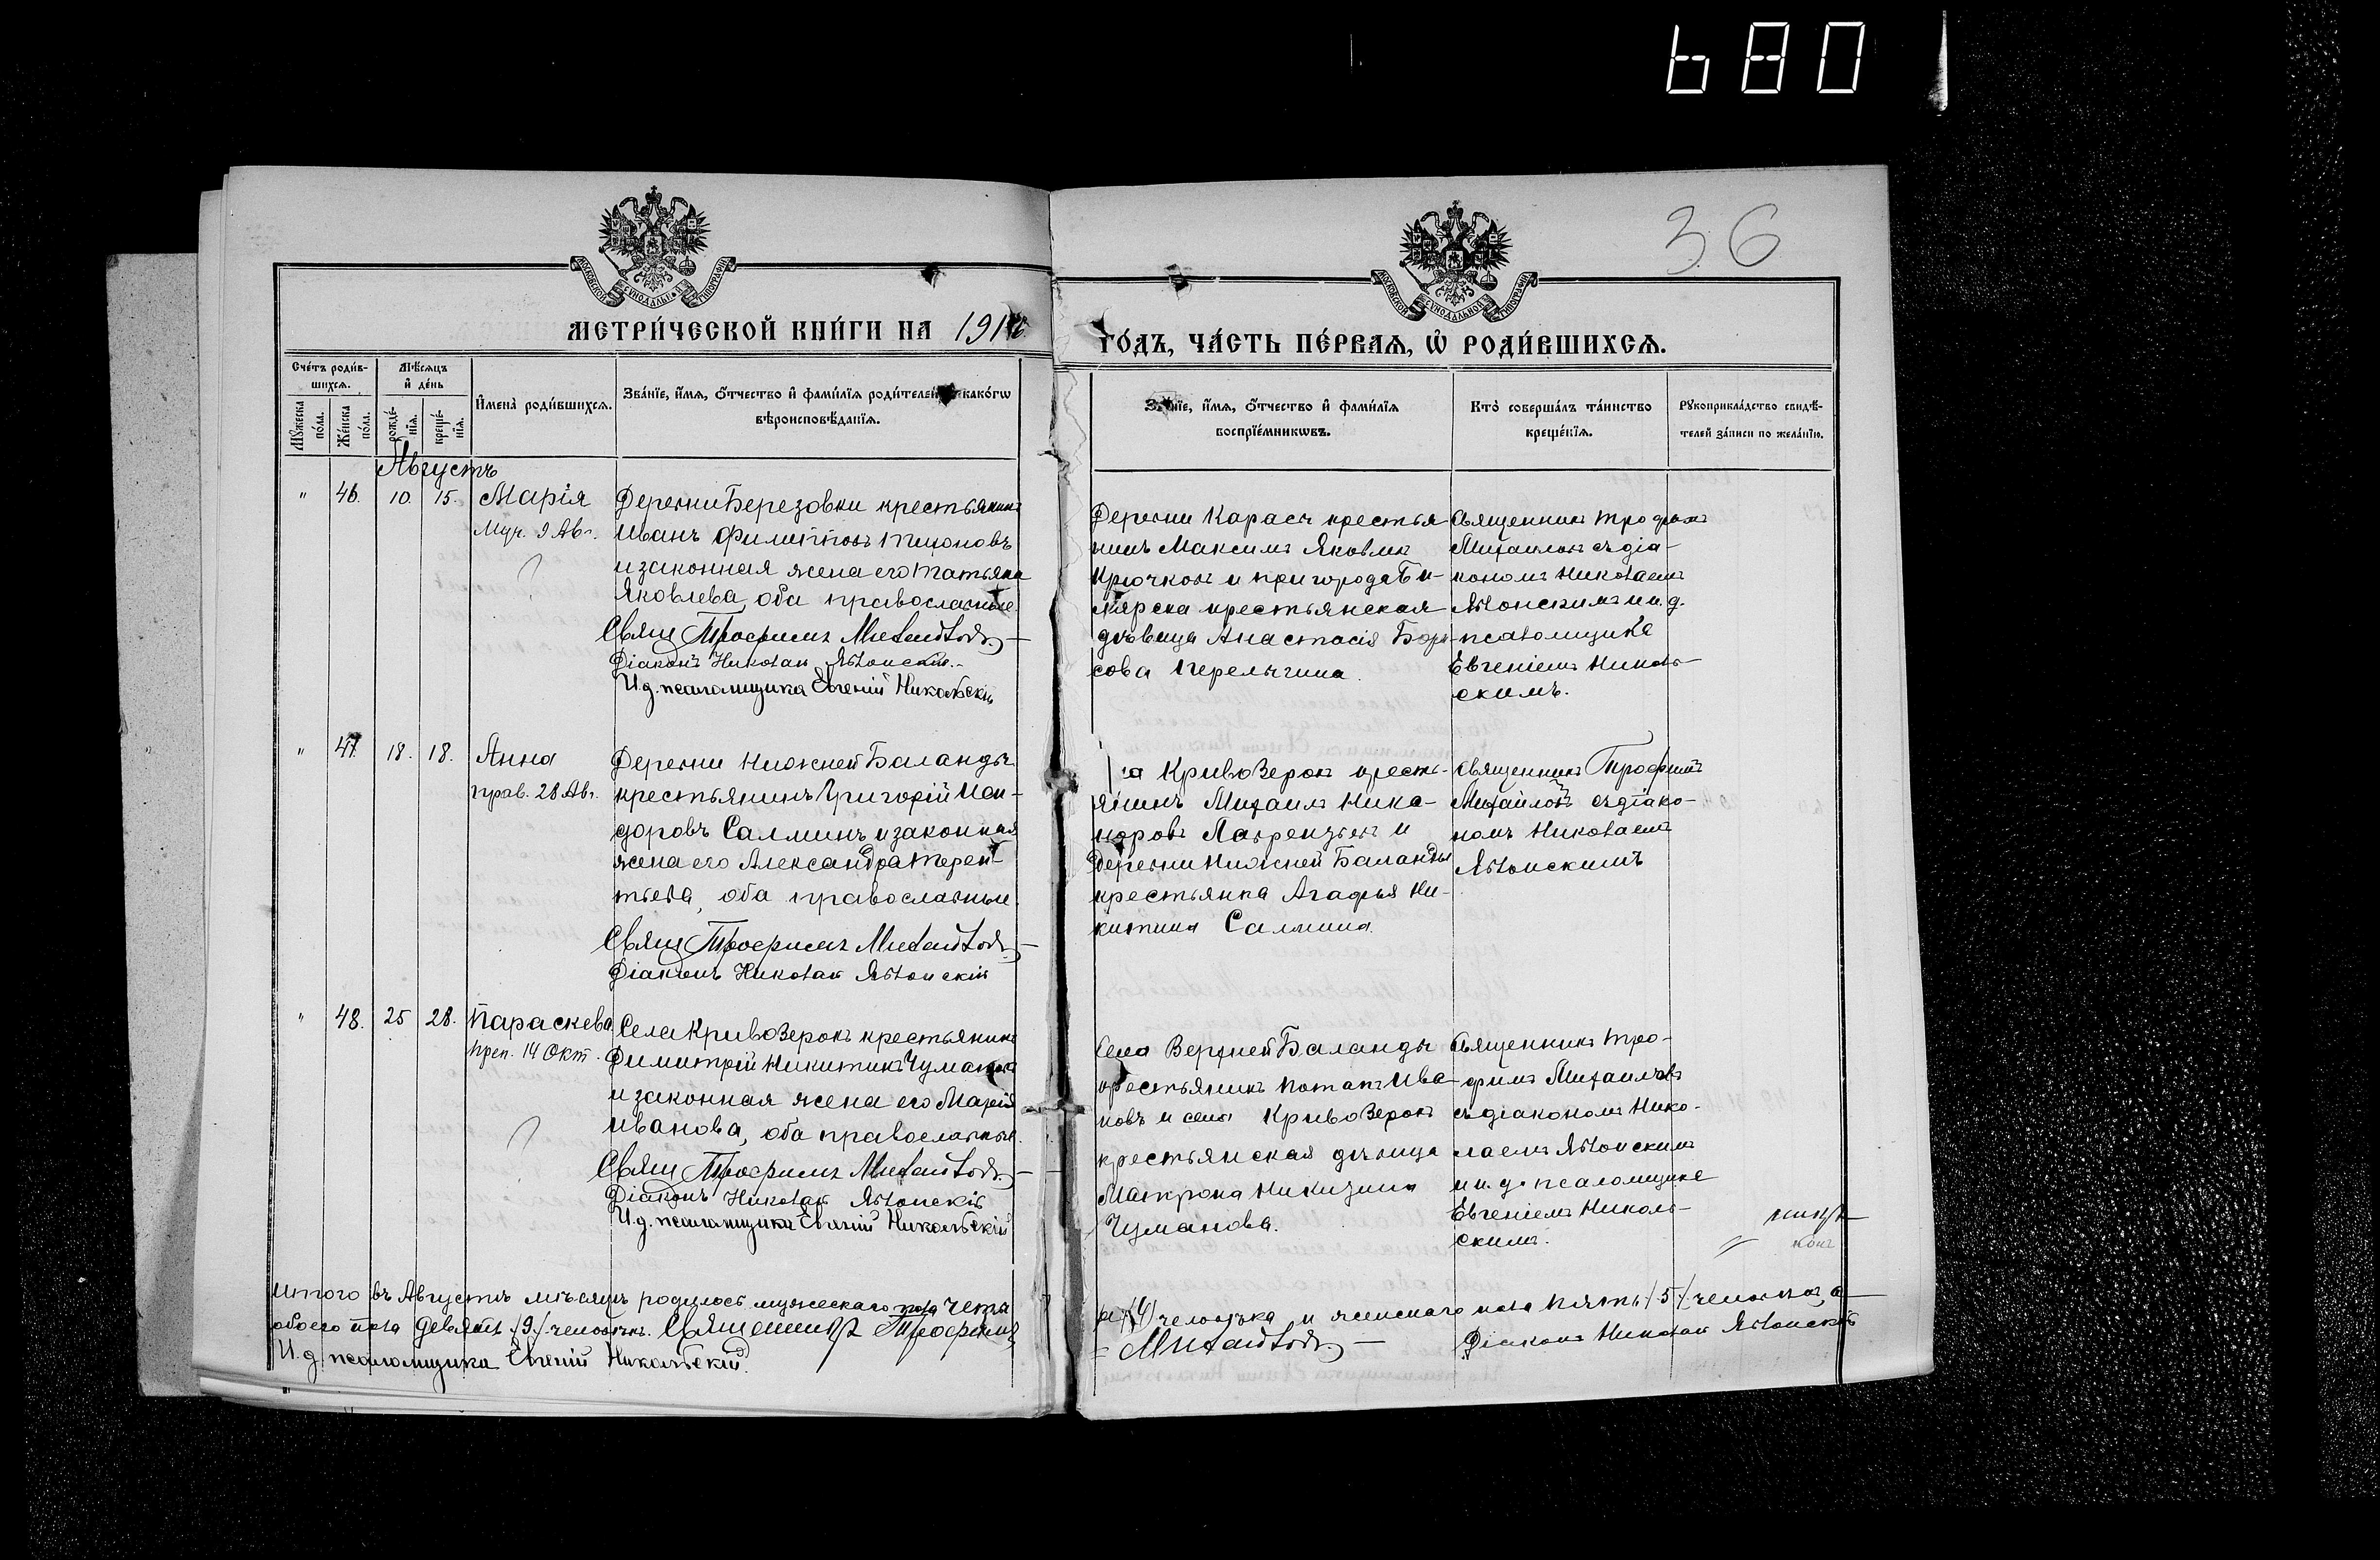 680
36
МОСКОВСКОЙ СѴНОДАЛЬНОЙ ТИПОГРАФІИ
МОСКОВСКОЙ СѴНОДАЛЬНОЙ ТИПОГРАФІИ
МЕТРИ́ЧЕСКОЙ КНИ́ГИ НА 191
ГО́ДЪ, ЧА́СТЬ ПЕ́РВАѦ, Ѽ РОДИ́ВШИХСѦ.
Сче́тъ роди́вшихсѧ.
Мꙋ́жеска по́ла.
Же́нска по́ла.
Мѣ́сѧцъ и҆ де́нь
рожде́нїѧ.
креще́нїѧ.
И҆мена̀ роди́вшихсѧ.
Зва́нїе, и҆́мѧ, ѻ҆́тчество и҆ фами́лїѧ роди́телей, како́гѡ
вѣроисповѣ́данїѧ.
Зва́нїе, и҆́мѧ, ѻ҆́тчество и҆ фами́лїѧ
воспрїе́мникѡвъ.
Кто̀ соверша́лъ та́инство
креще́нїѧ.
Рꙋкоприкла́дство свидѣ́-
телей за́писи по жела́нїю.
Августъ
" 46. 10. 15. Марія
Муч. 9 Авг.
Деревни Березовки крестьянинъ
Иванъ Филипповъ Тихоновъ
и законная жена его Татьяна
Яковлева, оба православные.
Свящ Трофимъ Михайловъ.
Діаконъ Николай Яблонскій.
И.д. псаломщика Евгеній Никольскій
Деревни Карасъ крестья
нинъ Максимъ Яковлевъ
Крючковъ и пригорода Би-
лярска крестьянская
дѣвица Анастасія Бори-
сова Перелыгина.
Священникъ Трофимъ
Михайловъ съ діа-
кономъ Николаемъ
Яблонскимъ и и.д.
псаломщика
Евгеніемъ Николь-
скимъ.
" 47. 18. 18. Анна
прав. 28 Авг.
Деревни Нижней Баланды
крестьянинъ Григорій Иси-
доровъ Салминъ и законная
жена его Александра Терен-
тьева, оба православные.
Свящ Трофимъ Михайловъ.
Діаконъ Николай Яблонскій
Села Кривозерокъ кресть-
янинъ Михаилъ Ника-
норовъ Лаврентьевъ и
деревни Нижней Баланды
крестьянка Агафья Ни-
китина Салмина.
Священникъ Трофимъ
Михайловъ съ діако-
номъ Николаемъ
Яблонскимъ
" 48. 25 28. Параскева
преп. 14 Окт.
Села Кривозерокъ крестьянинъ
Димитрій Никитинъ Чумановъ
и законная жена его Марія
Иванова, оба православные.
Свящ Трофимъ Михайловъ.
Діаконъ Николай Яблонскій
И.д. псаломщика Евгеній Никольскій
Села Верхней Баланды
крестьянинъ Потапъ Ива
новъ и села Кривозерокъ
крестьянская дѣвица
Матрона Никитина
Чуманова.
Священникъ Тро-
фимъ Михайловъ
съ діакономъ Нико-
лаемъ Яблонскимъ
и и.д. псаломщика
Евгеніемъ Николь-
скимъ.
Итого въ Августѣ мѣсяцѣ родилось мужескаго пола четы
ре /4/ человѣка и женскаго пола пять /5/ человѣкъ, а
обоего пола девять /9/ человѣкъ. Священникъ Трофимъ
Михайловъ. Діаконъ Николай Яблонскій
И.д. псаломщика Евгеній Никольскій.